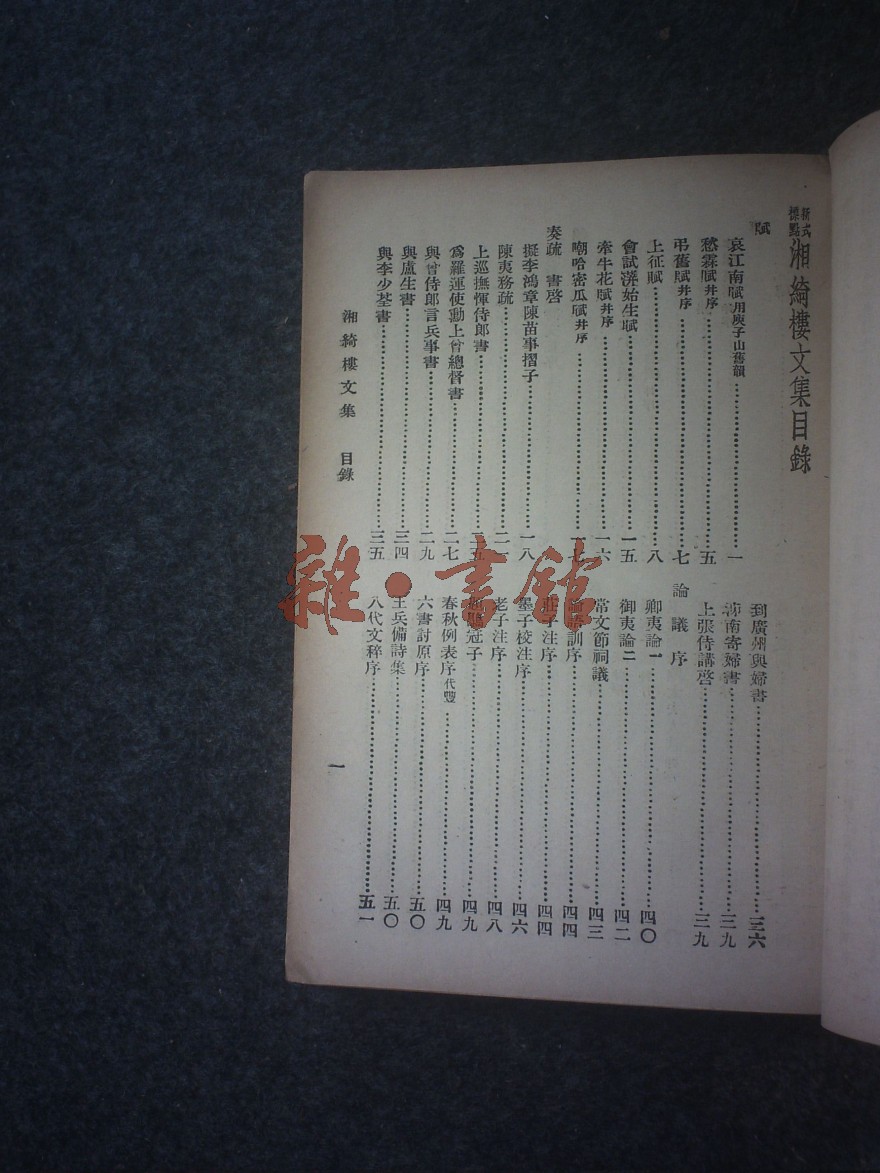 新式標點湘綺樓文集目錄
賦
哀江南賦用庾子山舊韻……一
愁霖賦并序……五
弔舊賦并序……七
上征賦……八
會試萍始生賦……一五
牽牛花賦并序……一六
嘲哈密瓜賦并序……一七
奏疏 書啓
擬李鴻章陳苗事摺子……一八
陳夷務疏……二一
上巡撫惲侍郎書……二五
爲羅運使勳上曾總督書……二七
與曾侍郎言兵事書……二九
與盧生書……三四
與李少荃書……三五
到廣州與婦書……三六
南寄婦書……三九
上張侍講啓……三九
論 議 序
御夷論一……四〇
御夷論二……四二
常文節祠議……四三
論語訓序……四四
莊子注序……四四
墨子校注序……四六
老子注序……四八
鶡冠子……四九
春秋例表序代豐……四九
六書討原序……五〇
王兵備詩集……五〇
八代文稡序……五一
湘綺樓文集 目錄
一
雜·書館